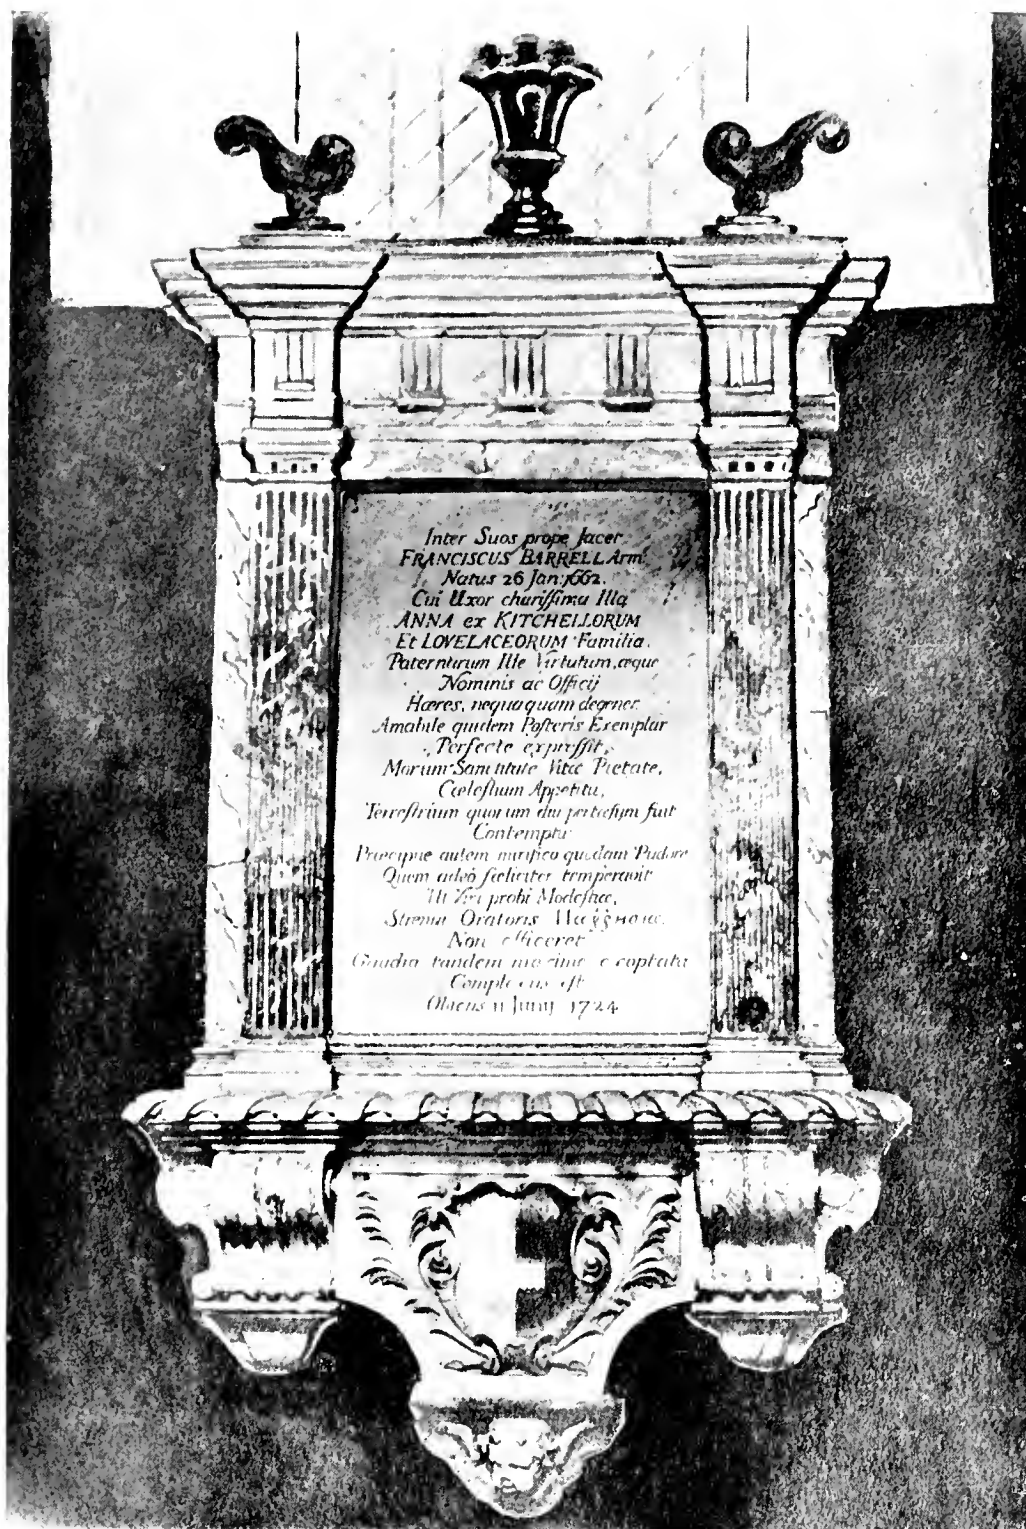 Inter Suos prope Jacet
FRANCISCUS BARRELL Armr
Natus 26 Jan: 1662.
Cui Uxor charissima Illa
ANNA ex KITCHELLORUM
Et LOVELACEORUM Familia.
Ille Virtutum, æque
Nominis ac Officij
Hæres, nequaquam degener.
Amabile quidem Posteris Exemplar
Perfecte expressit,
Morum Sanctitate Vitæ Pietate,
Cœlestium Appetitu,
Terrestrium quorum diu pertæsum fuit
Contemptu
Præcipue autem mirifico quodam Pudore
Quem adeò fœliciter temperavit
Ut Viri probi Modestiæ,
Strenui Oratoris
Non officeret
Gaudia tandem exoptata
Complexus est
Obiens 11 Junij 1724